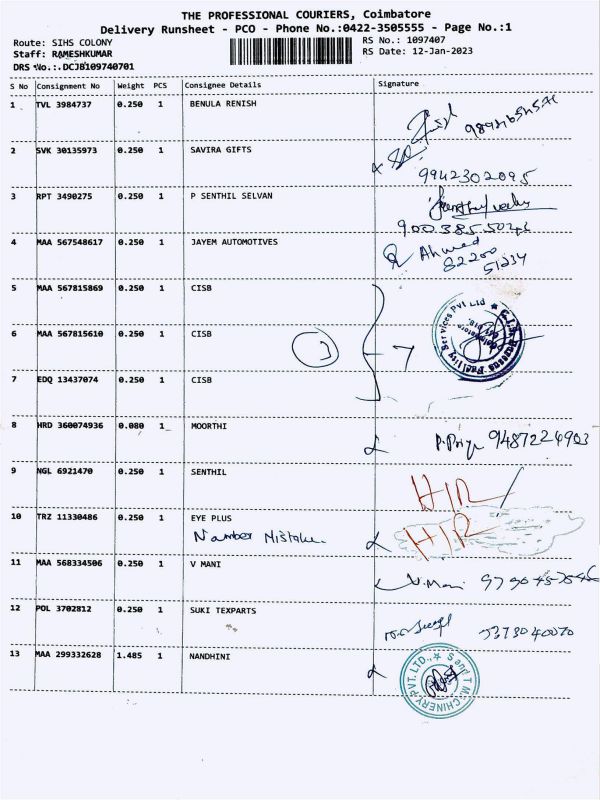 THE PROFESSIONAL COURIERS, Coimbatore
Delivery Runsheet - PCO - Phone No.:0422-3505555 - Page No.:1
Route: SIHS COLONY
Staff: RAMESHKUMAR
DRS No.:.DCJB109740701
RS No.: 1097407
RS Date: 12-Jan-2023
S No Consignment No Weight PCS Consignee Details Signature
1 TVL 3984737 0.250 1 BENULA RENISH
2 SVK 30135973 0.250 1 SAVIRA GIFTS
9942302095
3 RPT 3490275 0.250 1 P SENTHIL SELVAN
4 MAA 567548617 0.250 1 JAYEM AUTOMOTIVES
Ahmed
82200
51234
5 MAA 567815869 0.250 1 CISB
6 MAA 567815610 0.250 1 CISB
7
7 EDQ 13437074 0.250 1 CISB
8 HRD 360074936 0.080 1 MOORTHI
P. Priya 9487226903
9 NGL 6921470 0.250 1 SENTHIL
H/R
10 TRZ 11330486 0.250 1 EYE PLUS
Number Mistake
H/R
11 MAA 568334506 0.250 1 V MANI
V. Mani
12 POL 3702812 0.250 1 SUKI TEXPARTS
13 MAA 299332628 1.485 1 NANDHINI